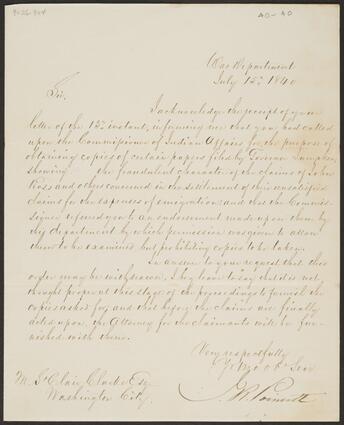 War Department
July 15, 1840
Sir,
I acknowledge the receipt of your
letter of the 13th instant, informing me that you had called
upon the Commissioner of Indian Affairs for the purpose of
obtaining copies of certain papers filed by
showing the fraudulent character of the claims of John
Ross and others concerned in the settlement of their unsatisfied
claims for the expenses of emigration; and that the Commis-
sioner referred you to an endorsement made upon them by
my department by which permission was given to allow
them to be examined but prohibiting copies to be taken.
In answer to your request that this
order may be withdrawn, I beg leave to say, that it is not
thought proper at this stage of the proceedings to furnish the
copies asked for, and that before the claims are finally
acted upon, the Attorney for the claimants will be fur-
nished with them.
Very respectfully
Yr Mo: Ob: Serv
J. R. Poinsett
M. St. Clair Clarke Esq
Washington City.